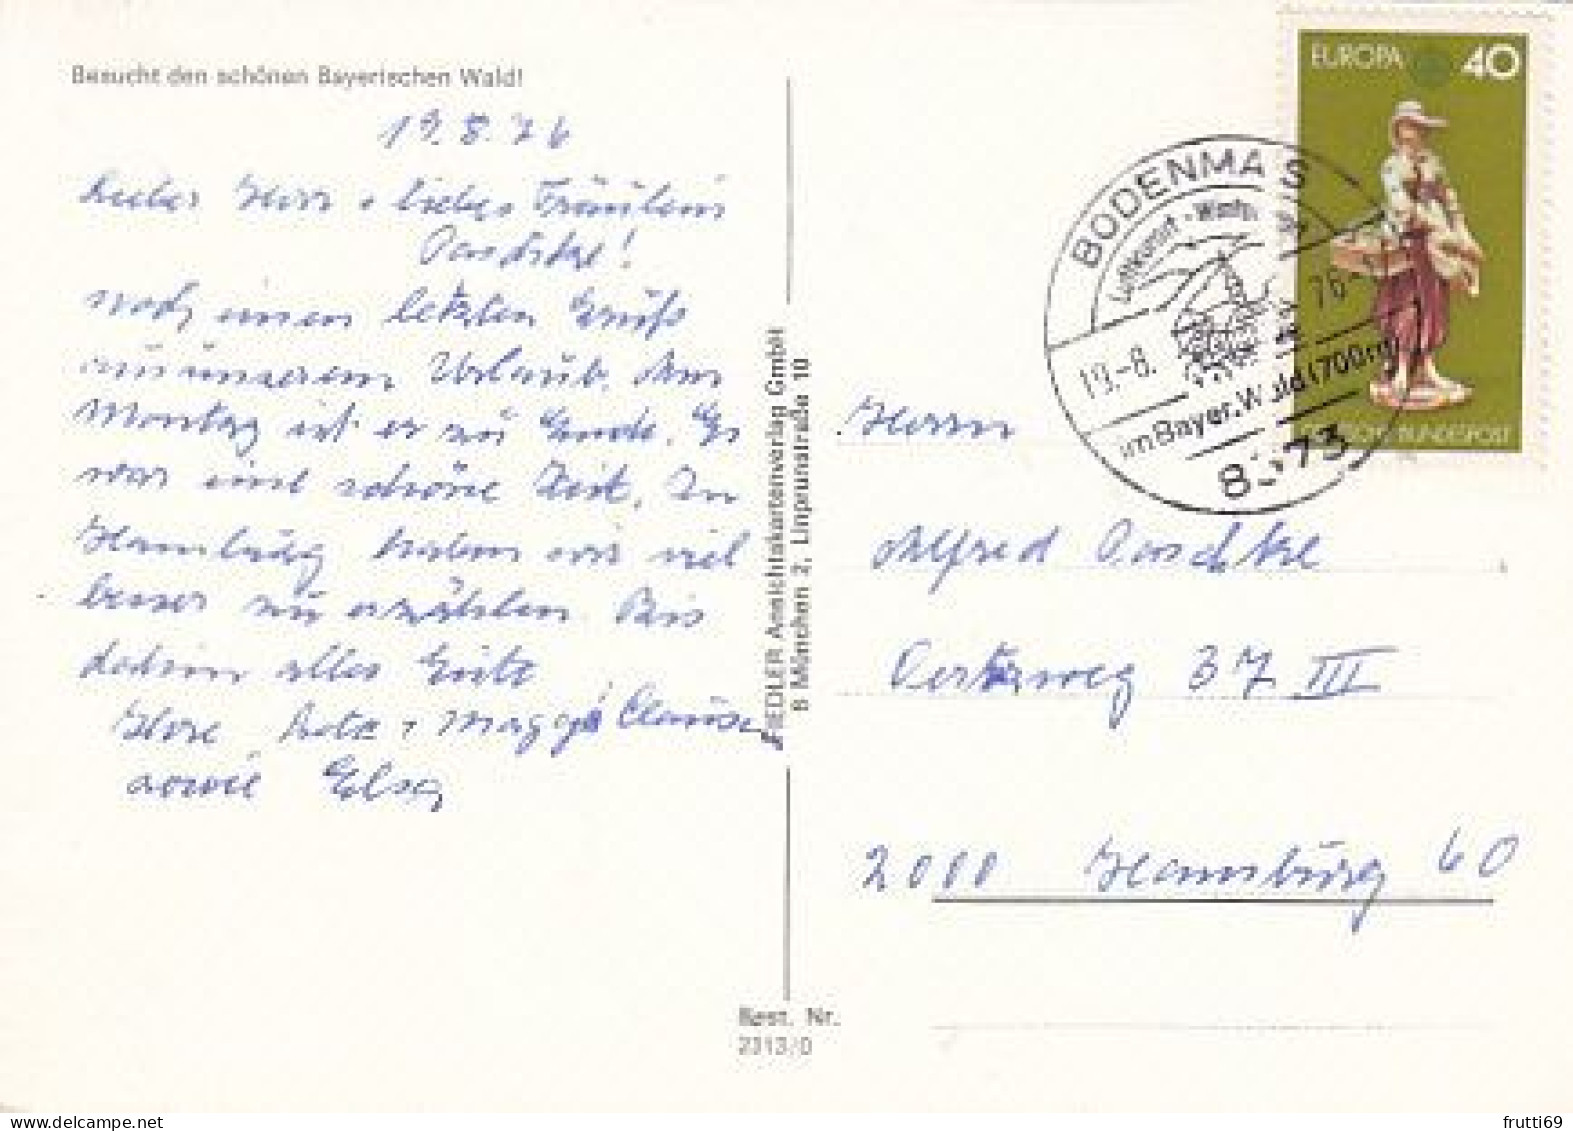 Besucht den schönen Bayerischen Wald!
19.8.76
Lieber Herr + liebes Fräulein
Paschke!
noch einen letzten Gruß
aus unserem Urlaub. Am
Montag ist er zu Ende. Es
war eine schöne Zeit. In
Hamburg haben wir viel
besser zu erzählen. Bis
dahin alles Gute
Ihre Lotte + Maggi Clausen
sowie Elsa
FIEDLER Ansichtskartenverlag GmbH
8 München 2, Linprunstraße 10
Best. Nr.
2313/0
EUROPA 40
DEUTSCHE BUNDESPOST
BODENMAIS
Luftkurort - Winter
19.-8. 76
im Bayer. Wald (700m)
8373
Herrn
Alfred Paschke
37 III
2000 Hamburg 60
frutti69